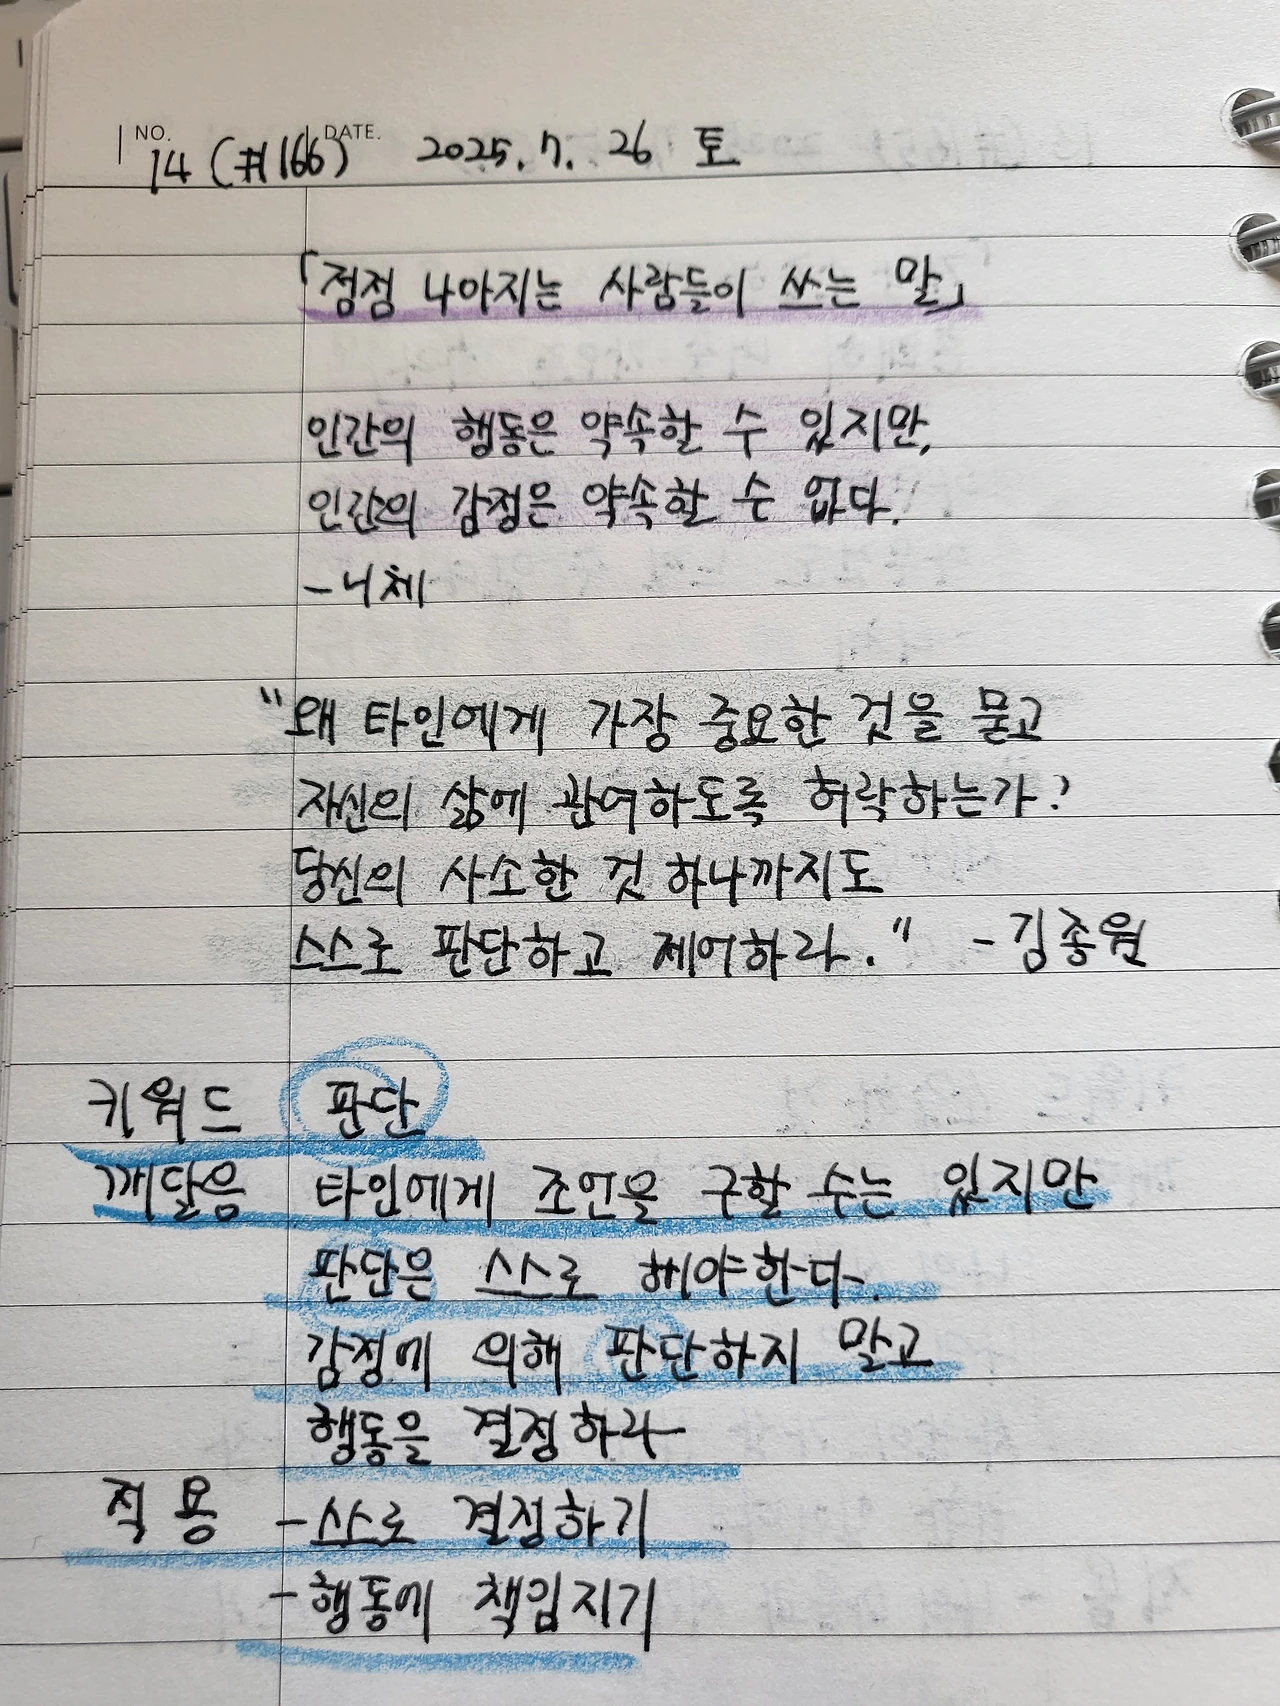 NO. 14 (#166) DATE. 2025. 7. 26 토
「점점 나아지는 사람들이 쓰는 말」
인간의 행동은 약속할 수 있지만,
인간의 감정은 약속할 수 없다.
- 니체
"왜 타인에게 가장 중요한 것을 묻고
자신의 삶에 관여하도록 허락하는가?
당신의 사소한 것 하나까지도
스스로 판단하고 제어하라." - 김종원
키워드 판단
깨달음 타인에게 조언을 구할 수는 있지만
판단은 스스로 해야한다.
감정에 의해 판단하지 말고
행동을 결정하라
적용 - 스스로 결정하기
- 행동에 책임지기